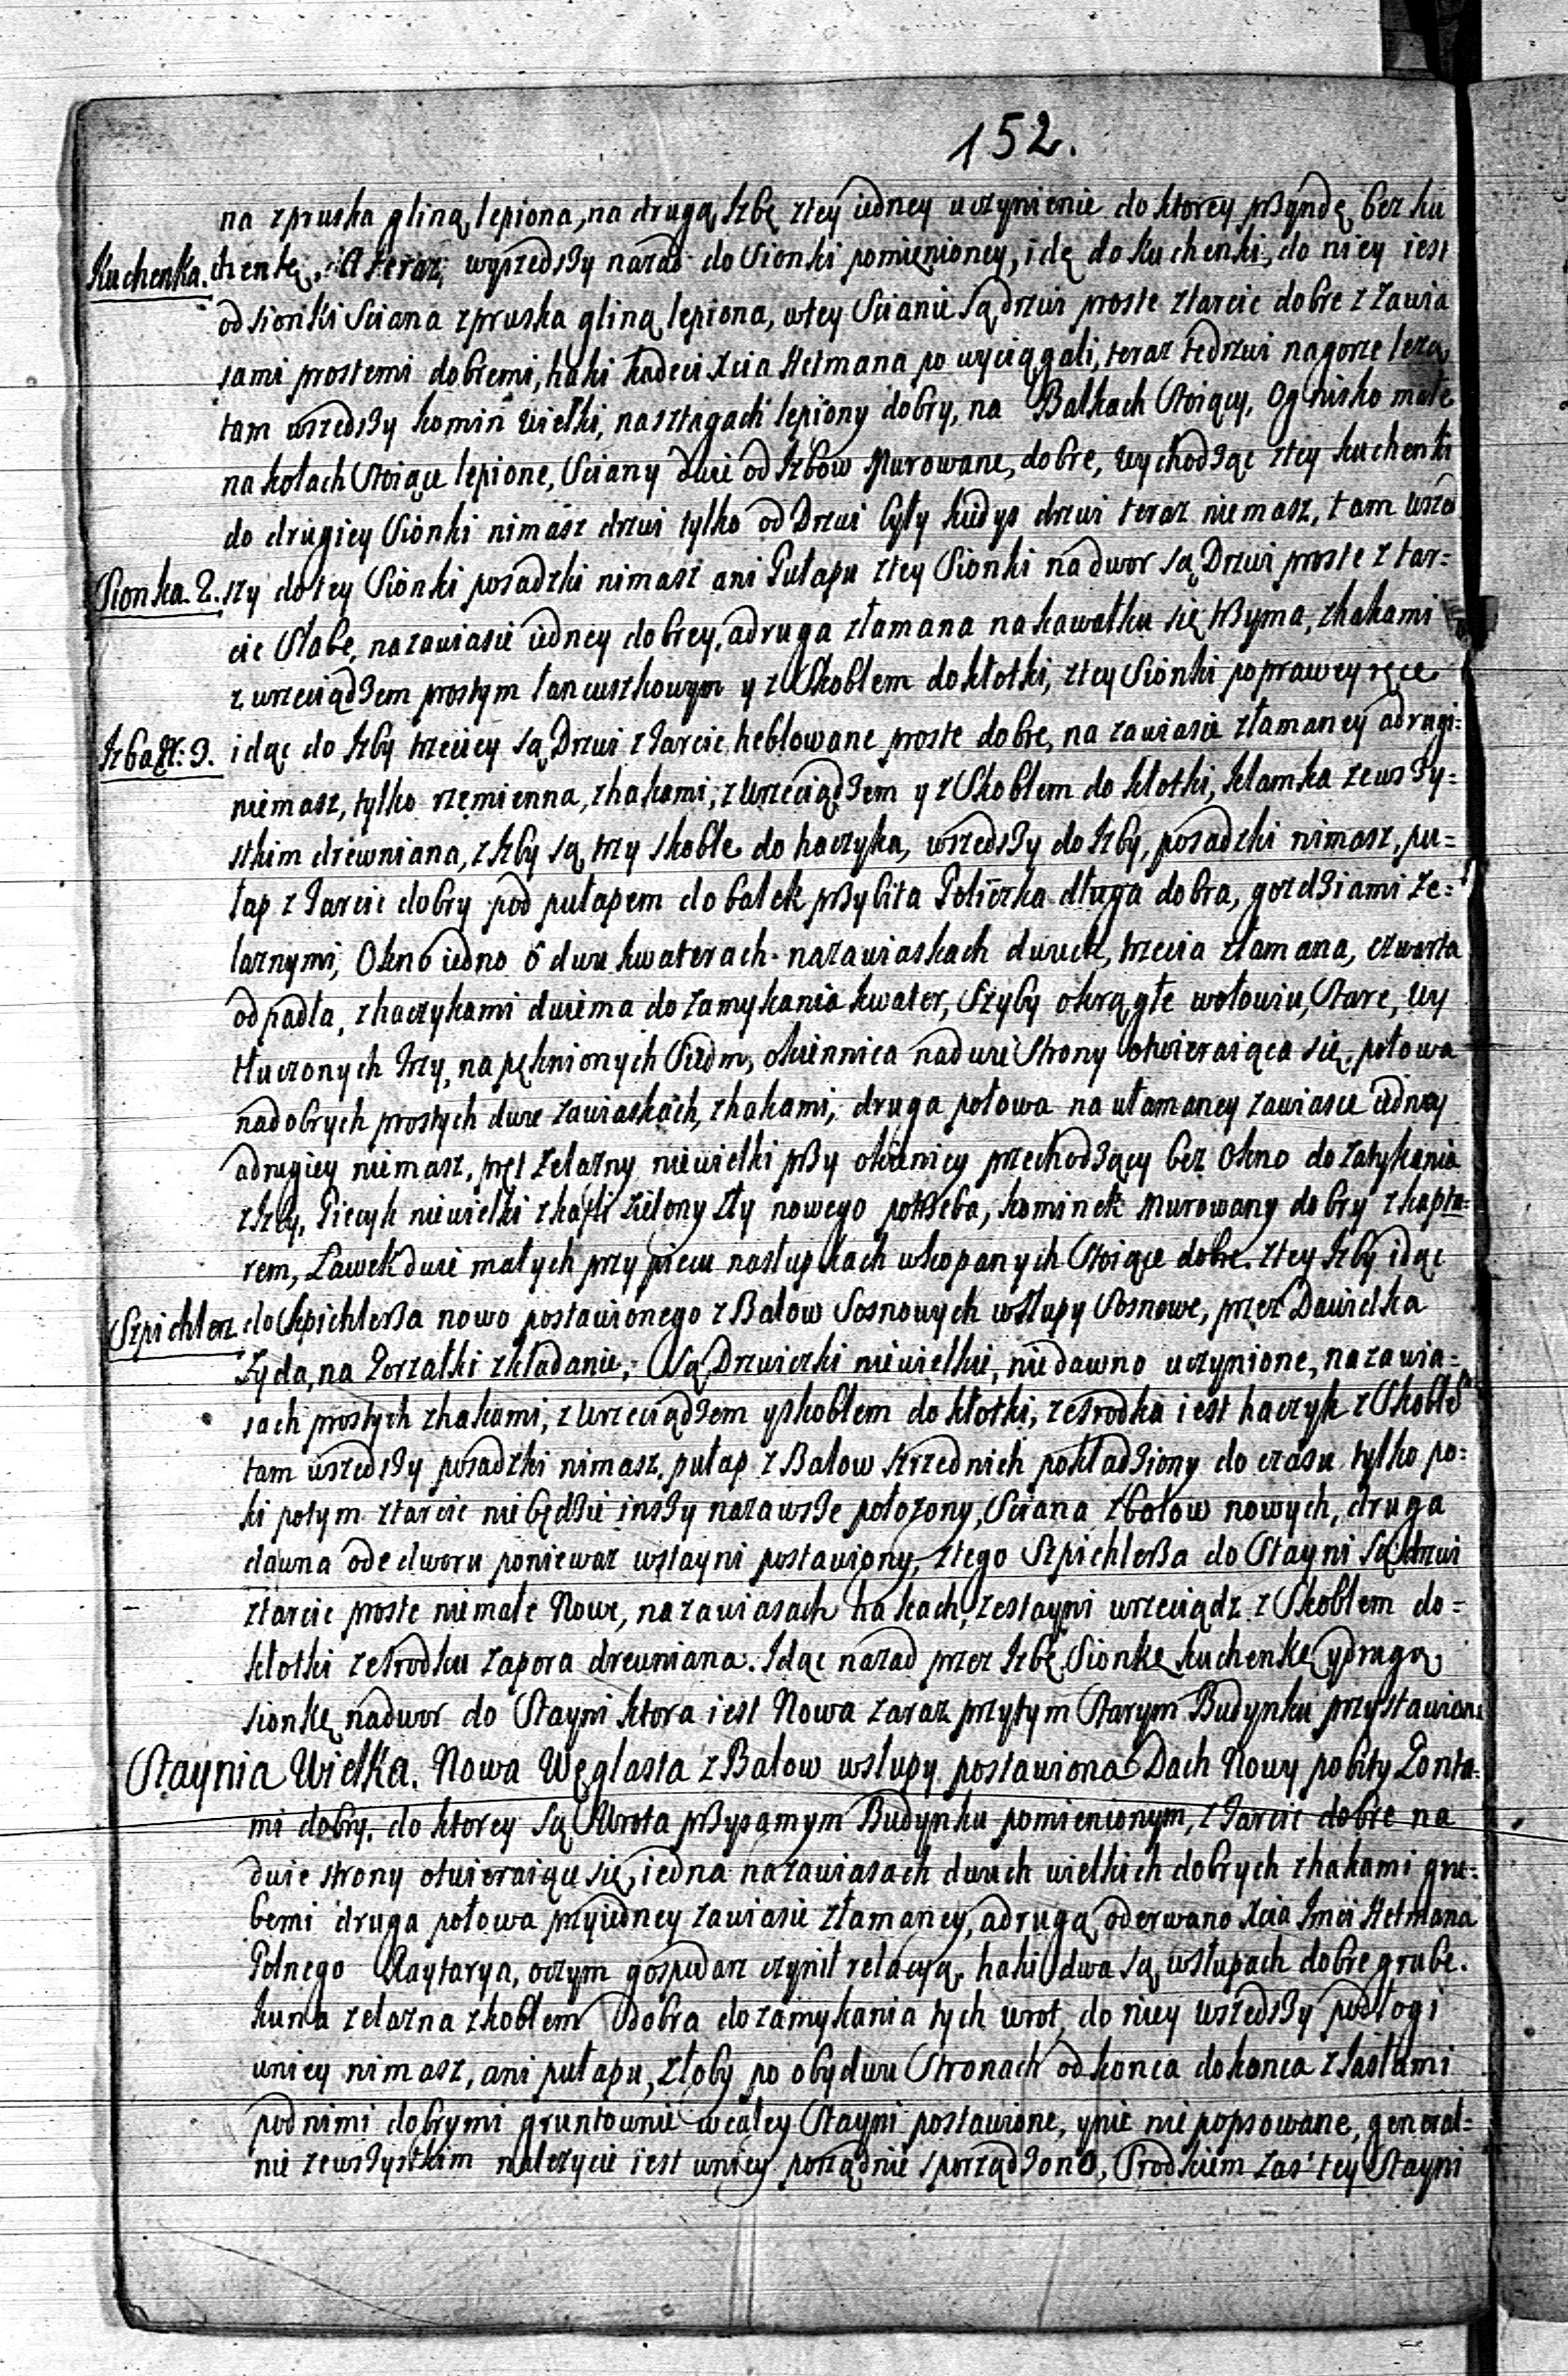 152.
na zpruska gliną lepiona, na drugą Izbę ztey iedney uczynienie do ktorey przyndę bez ku
Kuchenka. chenkę, A teraz wyszedszy nazad do Sionki pomienioney, idę do kuchenki, do niey iest
od sionki Sciana zpruska gliną lepiona, wtey Scianie są drzwi proste ztarcic dobre z zawia
sami prostemi dobremi, haki kadeci Xcia Hetmana po wyciągali, teraz te drzwi nagorze lezą,
tam wszedszy komin wielki, na sztagach lepiony dobry, na Balkach Stoiący, Ognisko małe
na kołach Stoiące lepione, Sciany dwie od Izbow Murowane, dobre, wychodząc ztey kuchenki
do drugiey Sionki nimasz drzwi tylko od Drzwi były kiedys drzwi teraz niemasz, tam wsze
Sionka. 2. szy do tey Sionki posadzki nimasz ani Pułapu ztey Sionki na dwor są Drzwi proste z tar-
cic Słabe, nazawiasie iedney dobrey, adruga złamana na kawałku się trzyma, zhakami
z wrzeciądzem prostym łancuszkowym y z Skoblem do kłotki, ztey Sionki po prawey ręce
Izba N: 3. idąc do Izby trzeciey są Drzwi z Tarcic heblowane proste dobre, na zawiasie złamaney adrugi-
niemasz, tylko rzemienna, zhakami, z wrzeciądzem y z Skoblem do kłotki, klamka zewszy-
stkim drewniana, z Izby są trzy skoble do haczyka, wszedszy do Izby, posadzki nimasz, pu-
łap z Tarcic dobry pod pułapem do balek przybita Policzka długa dobra, gozdziami ze-
laznymi, Okno iedno o dwu kwaterach nazawiaskach dwuch, trzecia złamana, czwarta
odpadła, zhaczykami dwiema do zamykania kwater, Szyby okrągłe wołowiu, Stare, wy
tłuczonych trzy, napęknionych Siedm, okiennica nadwie Strony otwieraiąca się, połowa
nadobrych prostych dwu zawiaskach, zhakami, druga połowa na ułamaney zawiasie iedney
adrugiey niemasz, pręt zelazny niewielki przy okienicy przechodzący bez Okno do zatykania
z Izby, Piecyk niewielki zkafli zielony zły nowego potrzeba, kominek Murowany dobry zkaptu-
rem, Ławek dwie małych przy piecu nasłupkach wkopanych Stoiące dobre. ztey Izby idąc
Szpichlerz do Spichlerza nowo postawionego z Balow Sosnowych wsłupy Sosnowe, przez Dawidka
Zyda, na Gorzałki zkładanie, Są Drzwiczki niewielkie, niedawno uczynione, nazawia-
sach prostych zhakami, z wrzeciądzem yskoblem do kłotki, ze srodka iest haczyk z Skoble
tam wszedszy posadzki nimasz, pułap z Balow Srzednich pokładziony do czasu tylko po-
ki potym ztarcic niebędzie inszy nazawsze połozony, Sciana zbalow nowych, druga
dawna ode dworu poniewaz wstayni postawiony, ztego Szpichlerza do Stayni są drzwi
ztarcic proste niemałe Nowe, nazawiasach hakach, zestayni wrzeciądz z Skoblem do-
kłotki ze srodku zapora drewniana. Idąc nazad przez Izbę, Sionkę, kuchenkę, ydrugą
sionkę, nadwor do Stayni ktora iest Nowa zaraz przytym Starym Budynku przystawiona
Staynia Wielka. Nowa Węglasta z Balow wsłupy postawiona Dach Nowy pobity Gonta-
mi dobry, do ktorey są Wrota przysamym Budynku pomienionym, z Tarcic dobre na
dwie strony otwieraiące się, iedna nazawiasach dwuch wielkich dobrych zhakami gru-
bemi druga połowa przyiedney zawiasie złamaney, adrugą oderwano Xcia Imci Hetmana
Polnego Raytarya, oczym gospodarz czynił relacyą, haki dwa są wsłupach dobre grube.
kuna zelazna zkoblem dobra do zamykania tych wrot, do niey wszedszy podłogi
wniey nimasz, ani pułapu, złoby po obydwu Stronach od konca do konca z Iasłami
podnimi dobrymi gruntownie wcałey Stayni postawione, ynic nie popsowane, general-
nie zewszystkim nalezycie iest wniey porządnie sporządzono, Srodkiem zas tey Stayni